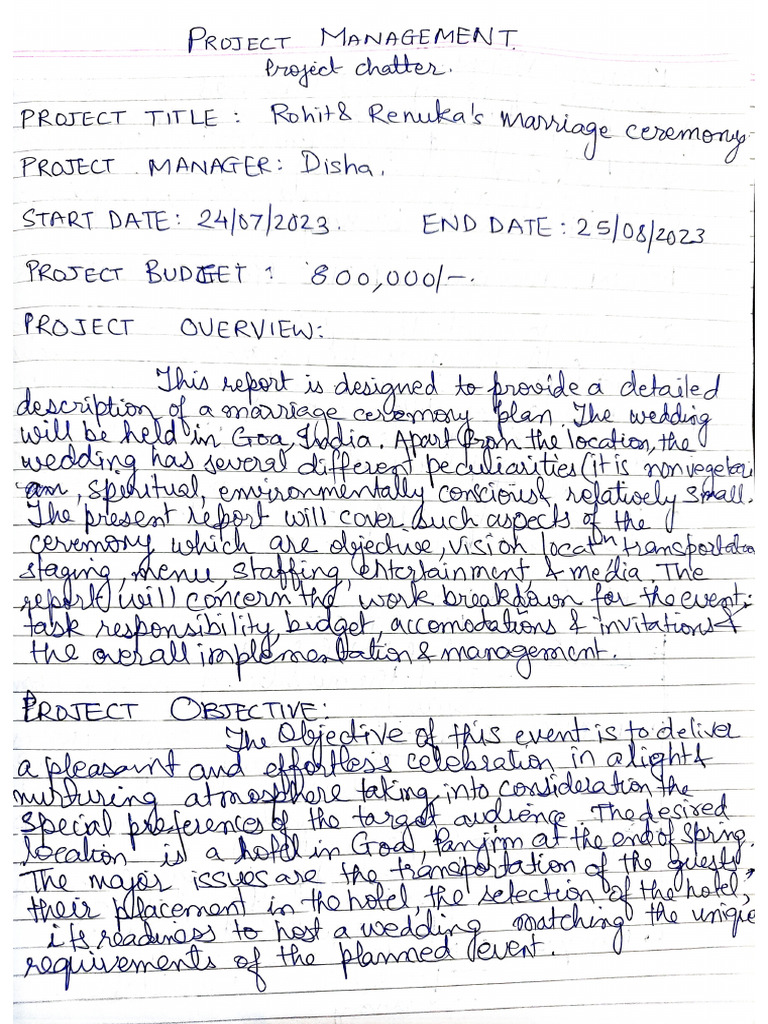 PROJECT MANAGEMENT.
Project chatter.
PROJECT TITLE : Rohit & Renuka's marriage ceremony
PROJECT MANAGER: Disha.
START DATE: 24/07/2023. END DATE : 25/08/2023
PROJECT BUDGET : 800,000/-.
PROJECT OVERVIEW:
This report is designed to provide a detailed
description of a marriage ceremony plan. The wedding
will be held in Goa, India. Apart from the location, the
wedding has several different peculiarities (it is nonvegetar
ian, spiritual, environmentally conscious & relatively small.
The present report will cover such aspects of the
ceremony which are objective, vision locatn transportation
staging, menu, staffing, entertainment & media. The
report will concern the work breakdown for the event:
task responsibility, budget, accomodations & invitations &
the overall implementation & management.
PROJECT OBJECTIVE:
The Objective of this event is to deliver
a pleasant and effortless celebration in a light &
nurturing atmosphere taking into consideration the
special preferences of the target audience. The desired
location is a hotel in Goa, Panjim at the end of spring.
The major issues are the transportation of the guests,
their placement in the hotel, the selection of the hotel,
its readiness to host a wedding matching the unique
requirements of the planned event.